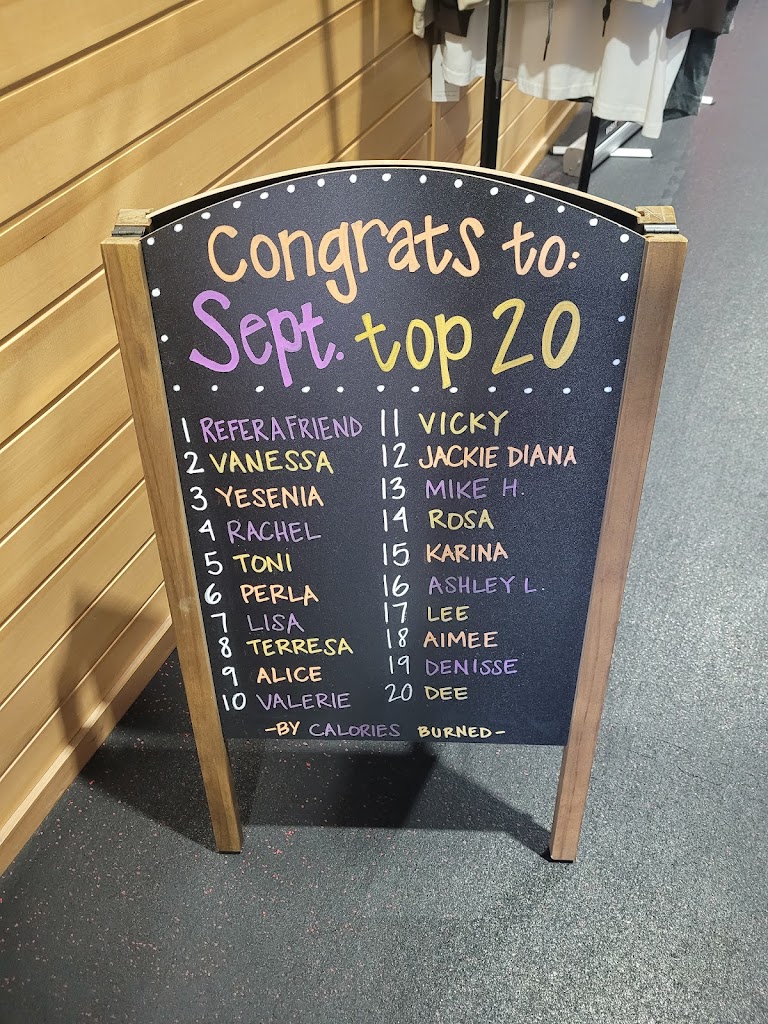 Congrats to:
Sept. top 20
1 REFERAFRIEND
2 VANESSA
3 YESENIA
4 RACHEL
5 TONI
6 PERLA
7 LISA
8 TERRESA
9 ALICE
10 VALERIE
11 VICKY
12 JACKIE DIANA
13 MIKE H.
14 ROSA
15 KARINA
16 ASHLEY L.
17 LEE
18 AIMEE
19 DENISSE
20 DEE
-BY CALORIES BURNED-